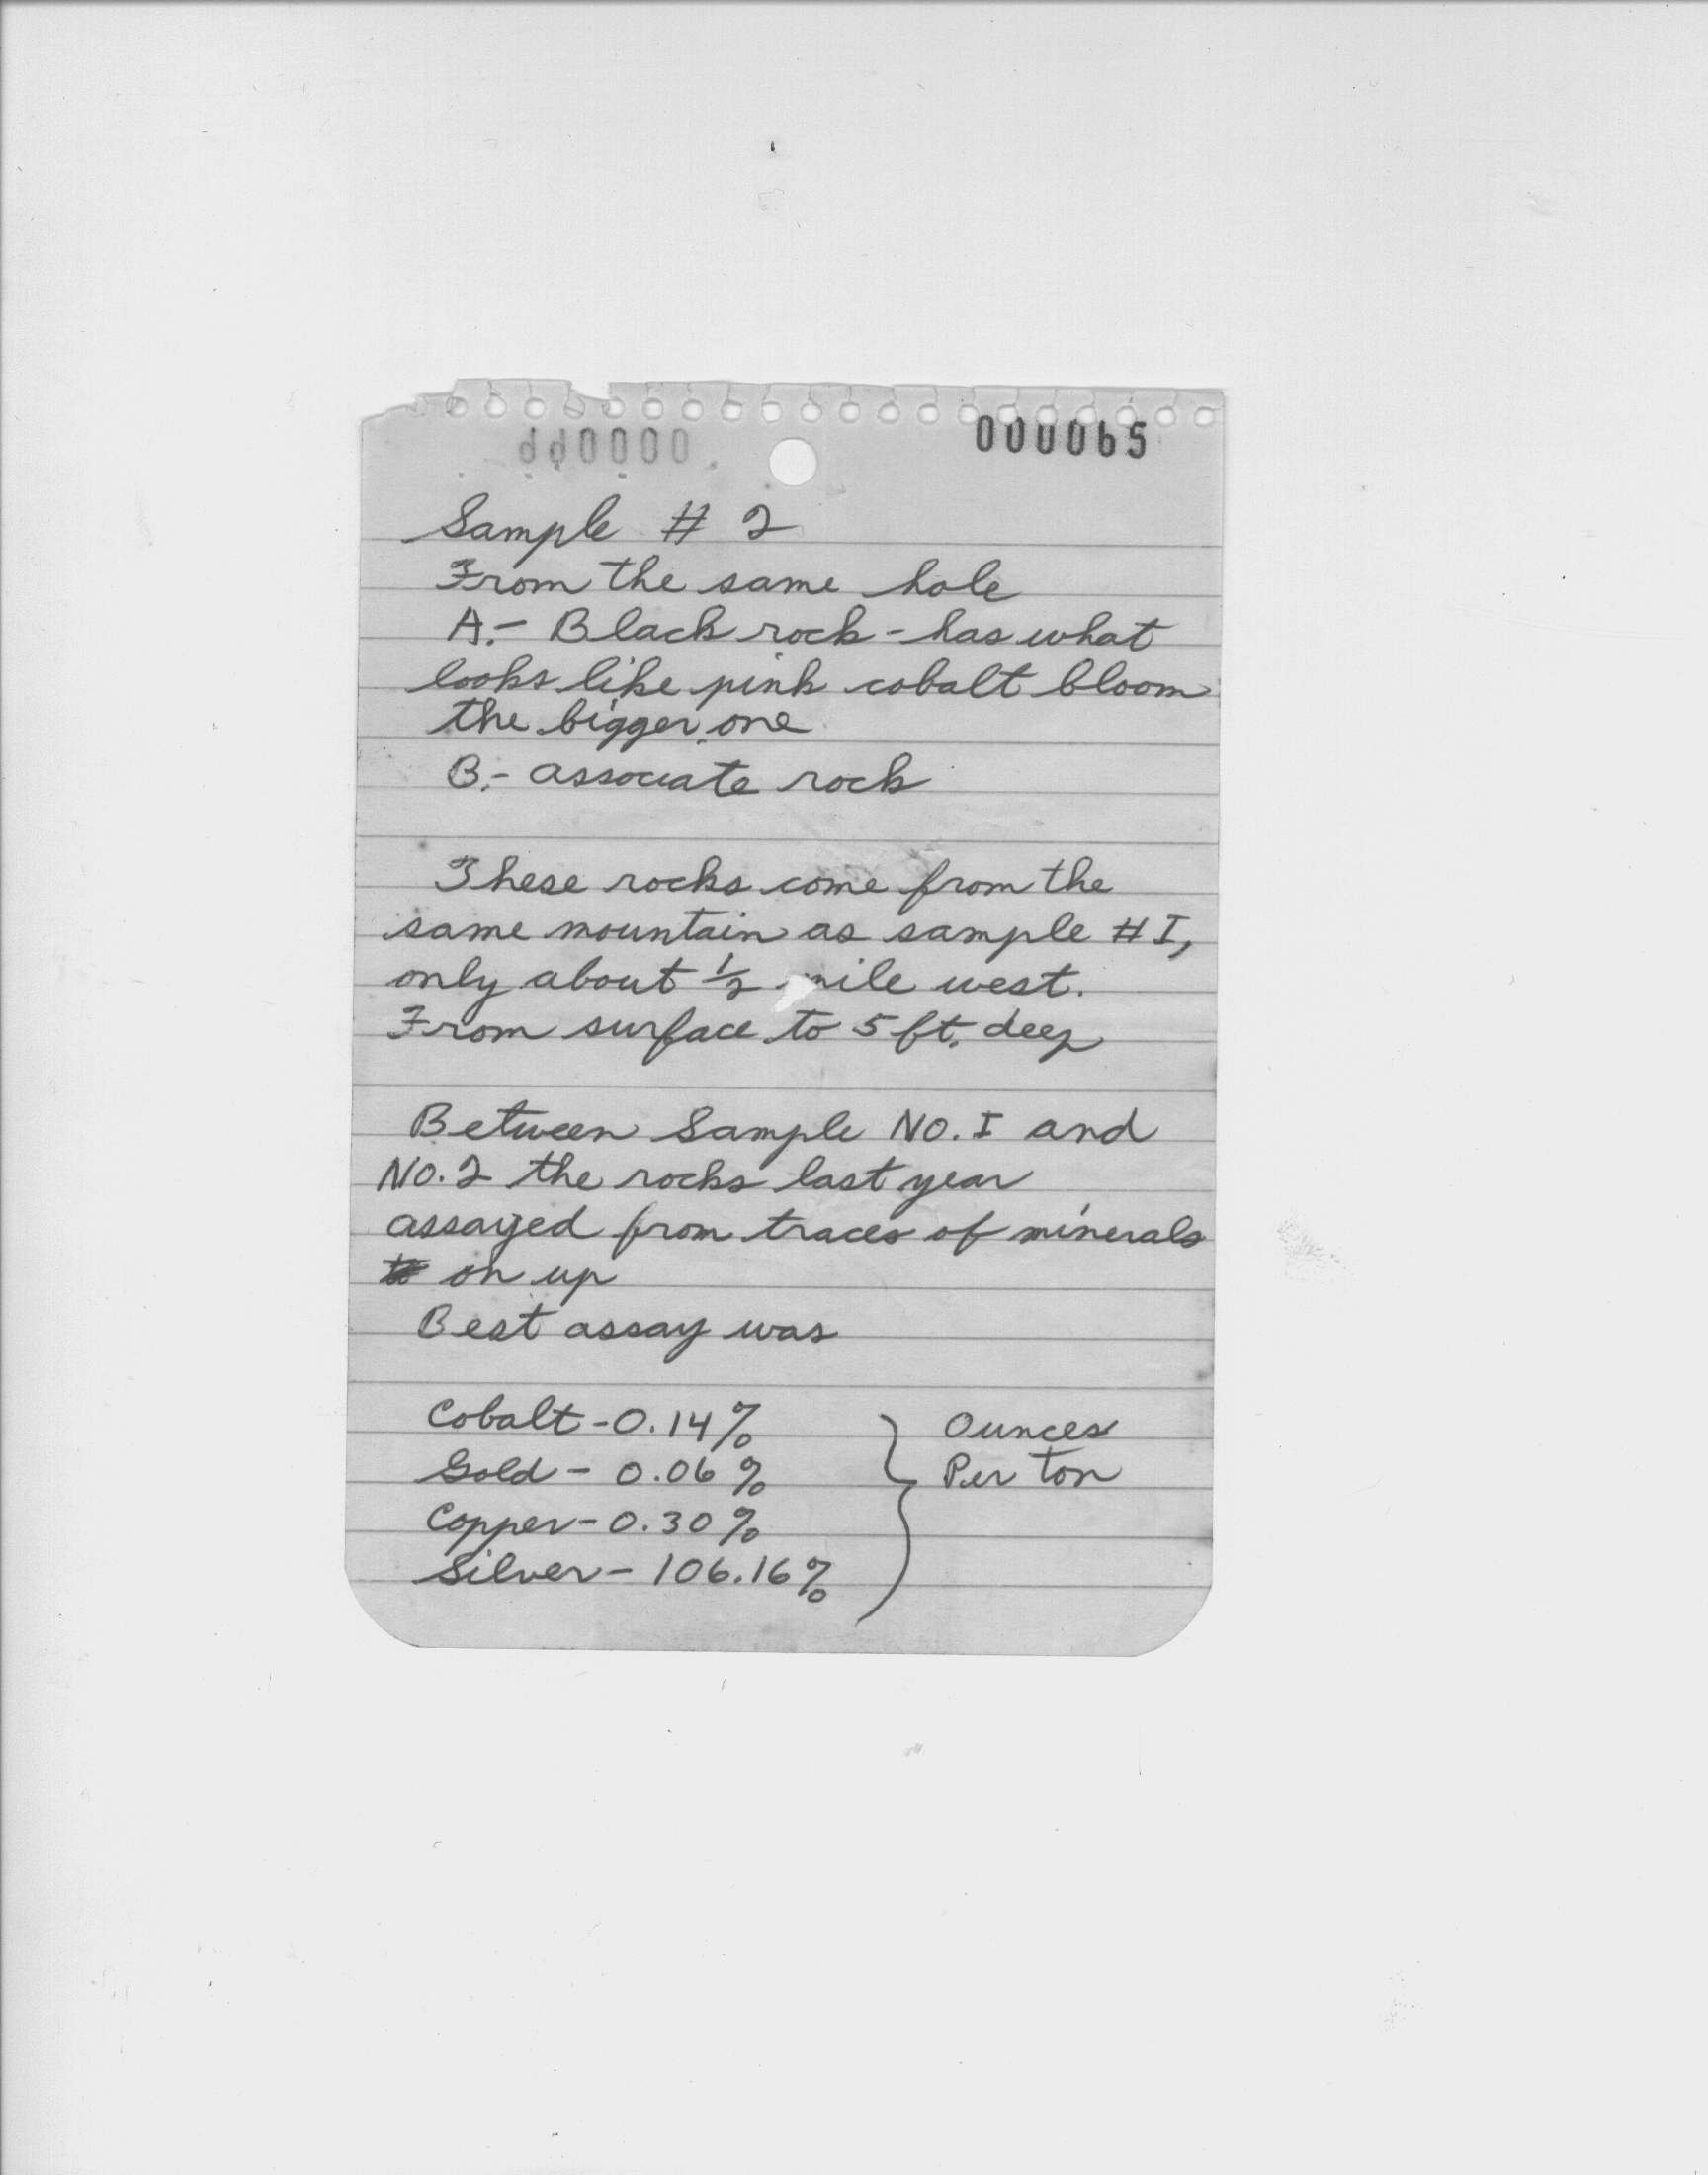 000065
Sample # 2
From the same hole
A.- Black rock - has what
looks like pink cobalt bloom
the bigger one
B.- associate rock
These rocks come from the
same mountain as sample # I,
only about 1/2 mile west.
From surface to 5 ft. deep
Between Sample No. I and
No. 2 the rocks last year
assayed from traces of minerals
on up
Best assay was
Cobalt - 0.14 % } Ounces
Gold - 0.06 % Per ton
Copper - 0.30 %
Silver - 106.16 %